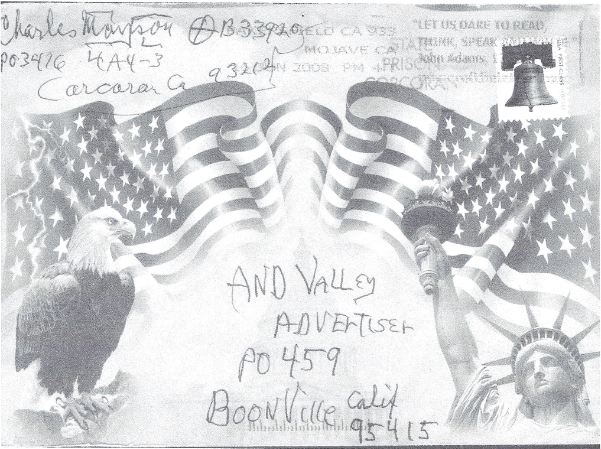 Charles Manson Ⓐ B33920
PO 3476 4A4-3
Corcoran Ca 93212
FIELD CA 933
MOJAVE CA
JAN 2008 PM
STATE
PRISON
CORCORAN
"LET US DARE TO READ,
THINK, SPEAK
John Adams,
AND VALLEY
ADVERTISER
PO 459
BOONVILLE Calif
95415